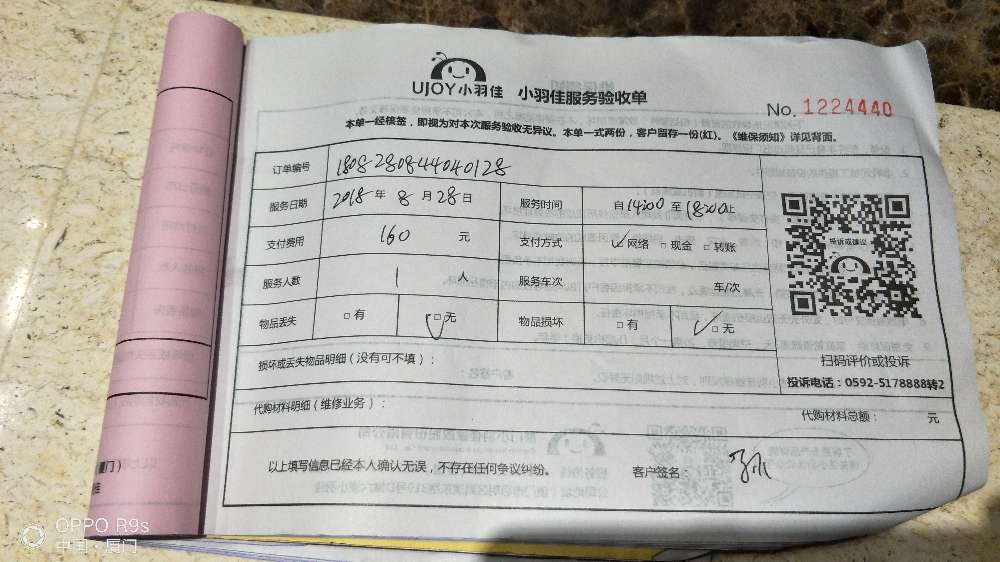 UJOY小羽佳 小羽佳服务验收单
No. 1224440
本单一经核签，即视为对本次服务验收无异议。本单一式两份，客户留存一份(红)。《维保须知》详见背面。
订单编号 1808280844040128
服务日期 2018年 8月 28日 服务时间 自14:00至18:00止
支付费用 160 元 支付方式 ☑网络 □现金 □转账
服务人数 1 人 服务车次 车/次
物品丢失 □有 ☑无 物品损坏 □有 ☑无
投诉或建议
扫码评价或投诉
投诉电话：0592-5178888转2
损坏或丢失物品明细（没有可不填）：
代购材料明细（维修业务）： 代购材料总额： 元
以上填写信息已经本人确认无误，不存在任何争议纠纷。 客户签名：
OPPO R9s
中国·厦门